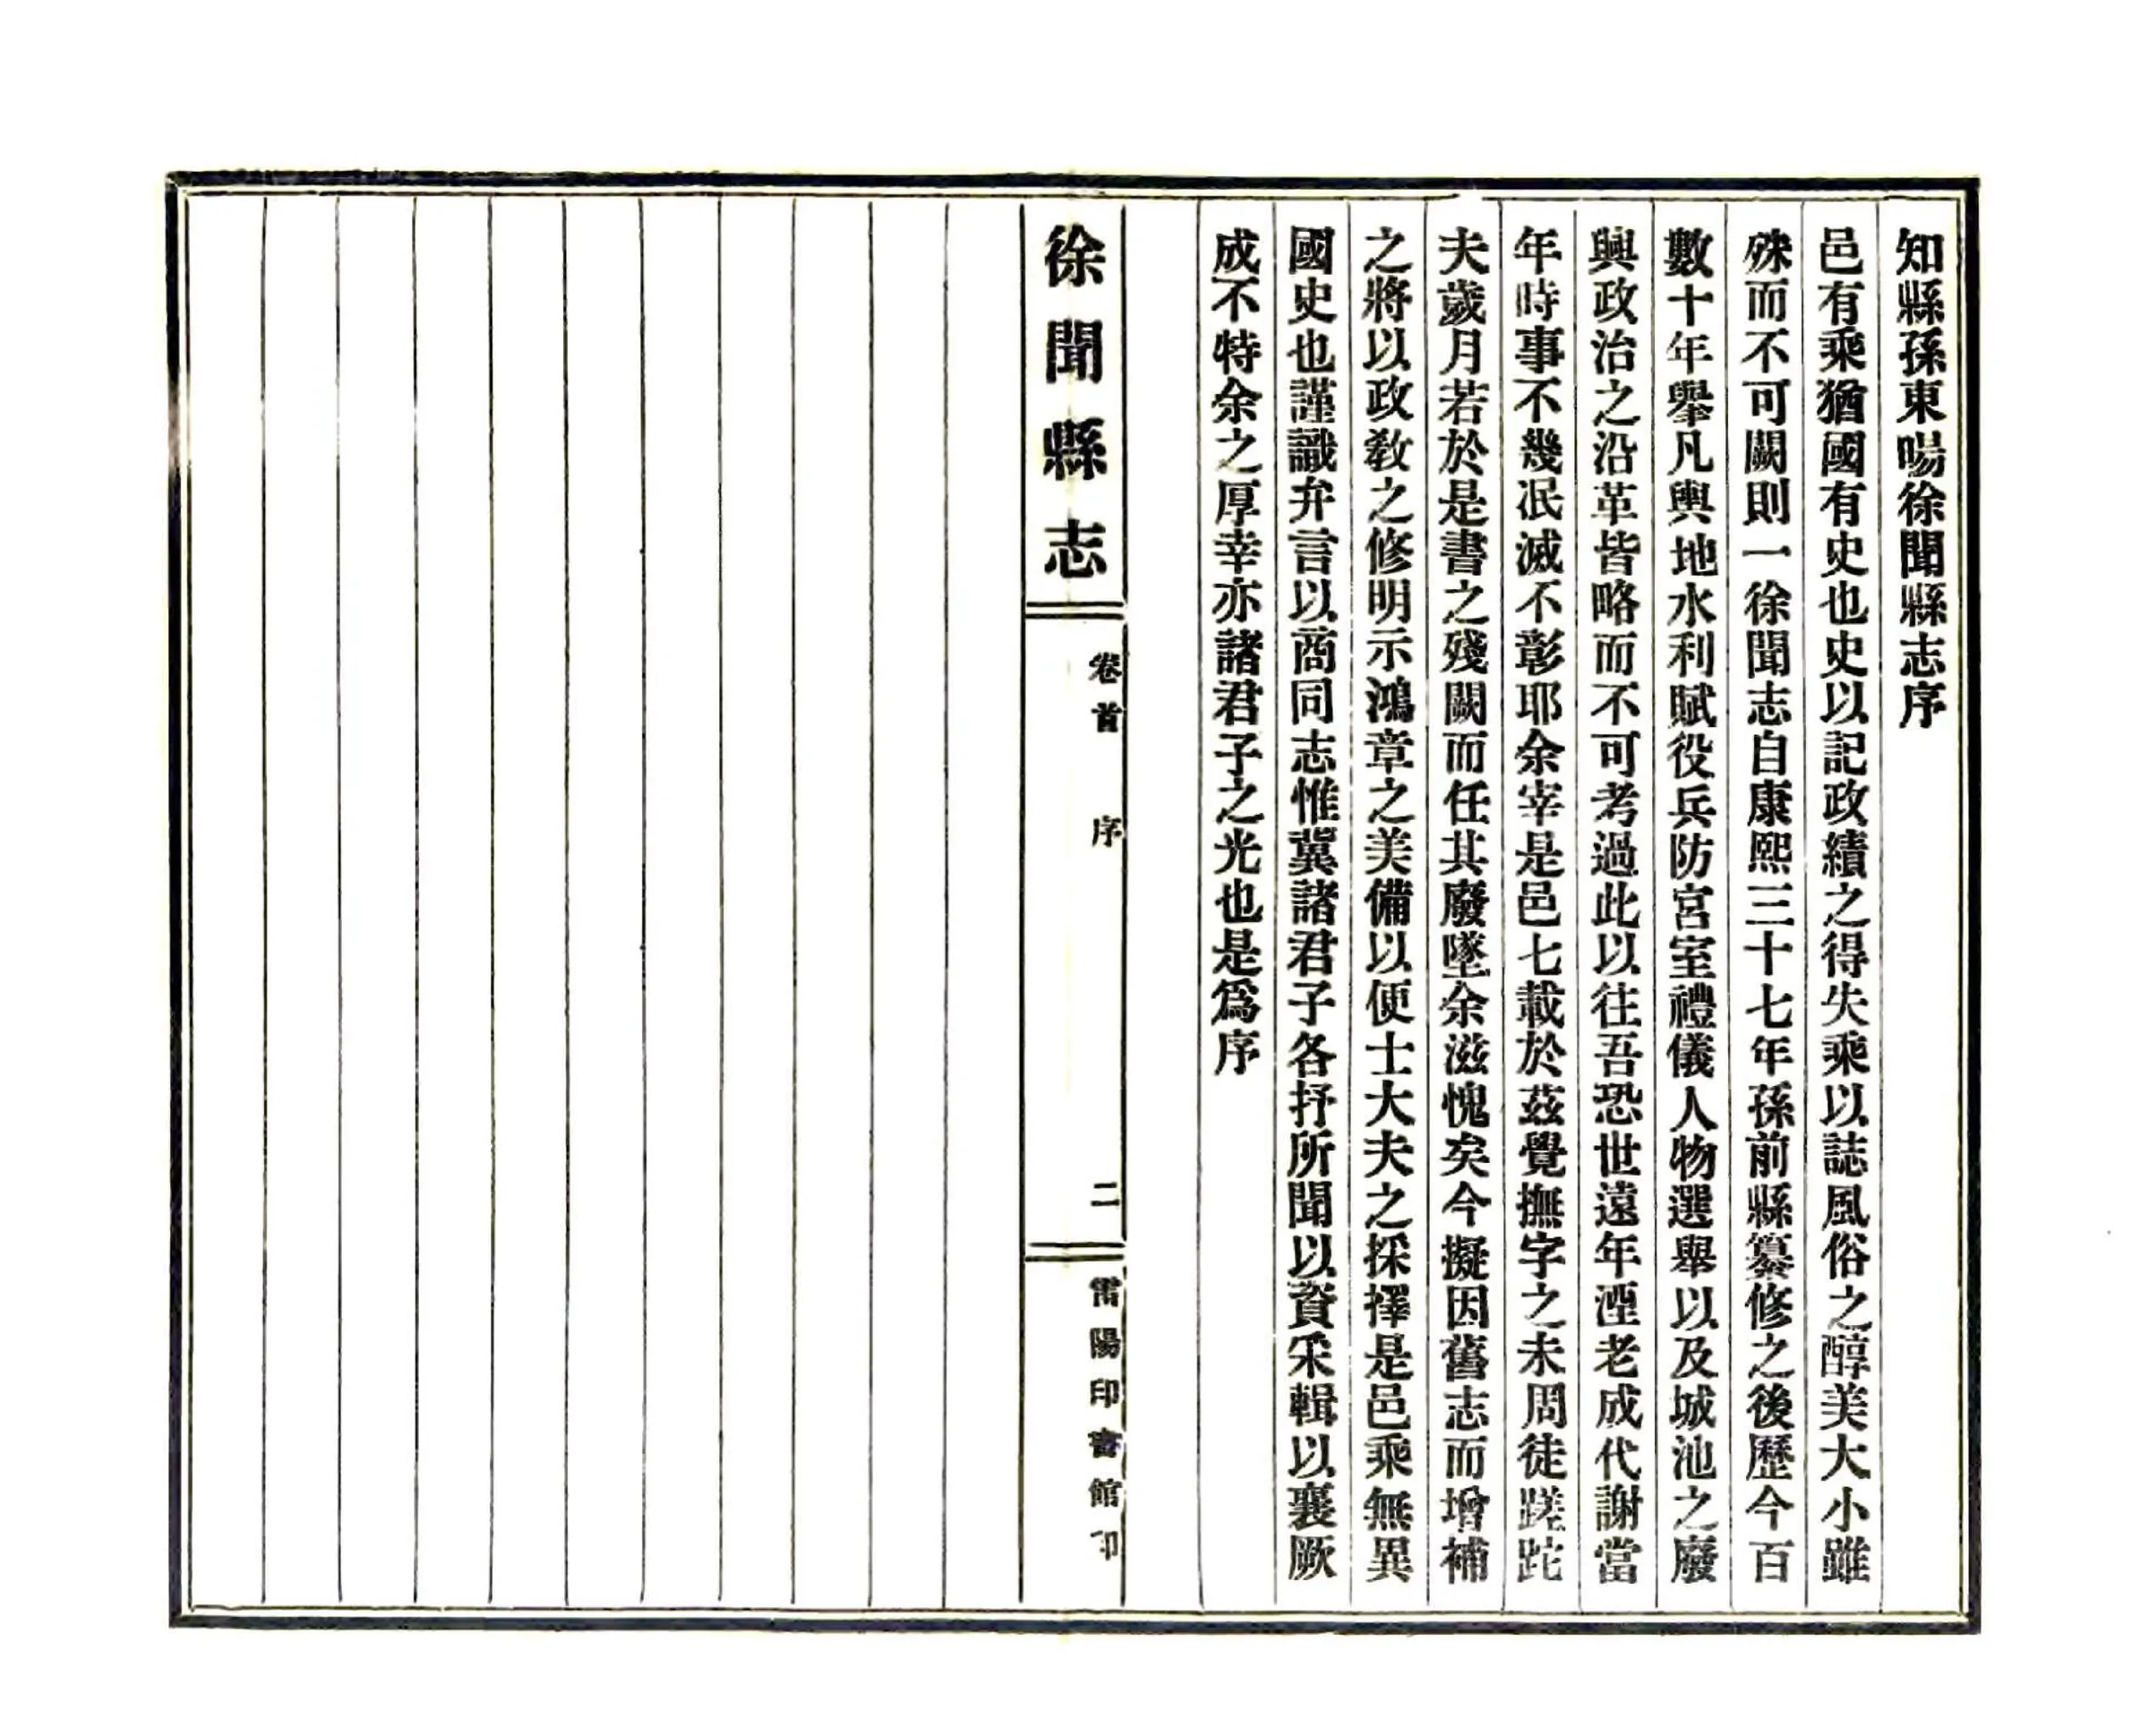 知縣孫東暘徐聞縣志序
邑有乘猶國有史也史以記政績之得失乘以誌風俗之醇美大小雖
殊而不可闕則一徐聞志自康熙三十七年孫前縣纂修之後歷今百
數十年舉凡輿地水利賦役兵防宮室禮儀人物選舉以及城池之廢
興政治之沿革皆略而不可考過此以往吾恐世遠年湮老成代謝當
年時事不幾泯滅不彰耶余宰是邑七載於茲覺撫字之未周徒蹉跎
夫歲月若於是書之殘闕而任其廢墜余滋愧矣今擬因舊志而增補
之將以政教之修明示鴻章之美備以便士大夫之採擇是邑乘無異
國史也謹識弁言以商同志惟冀諸君子各抒所聞以資采輯以襄厥
成不特余之厚幸亦諸君子之光也是爲序
徐聞縣志
卷首 序
二
雷陽印書館印